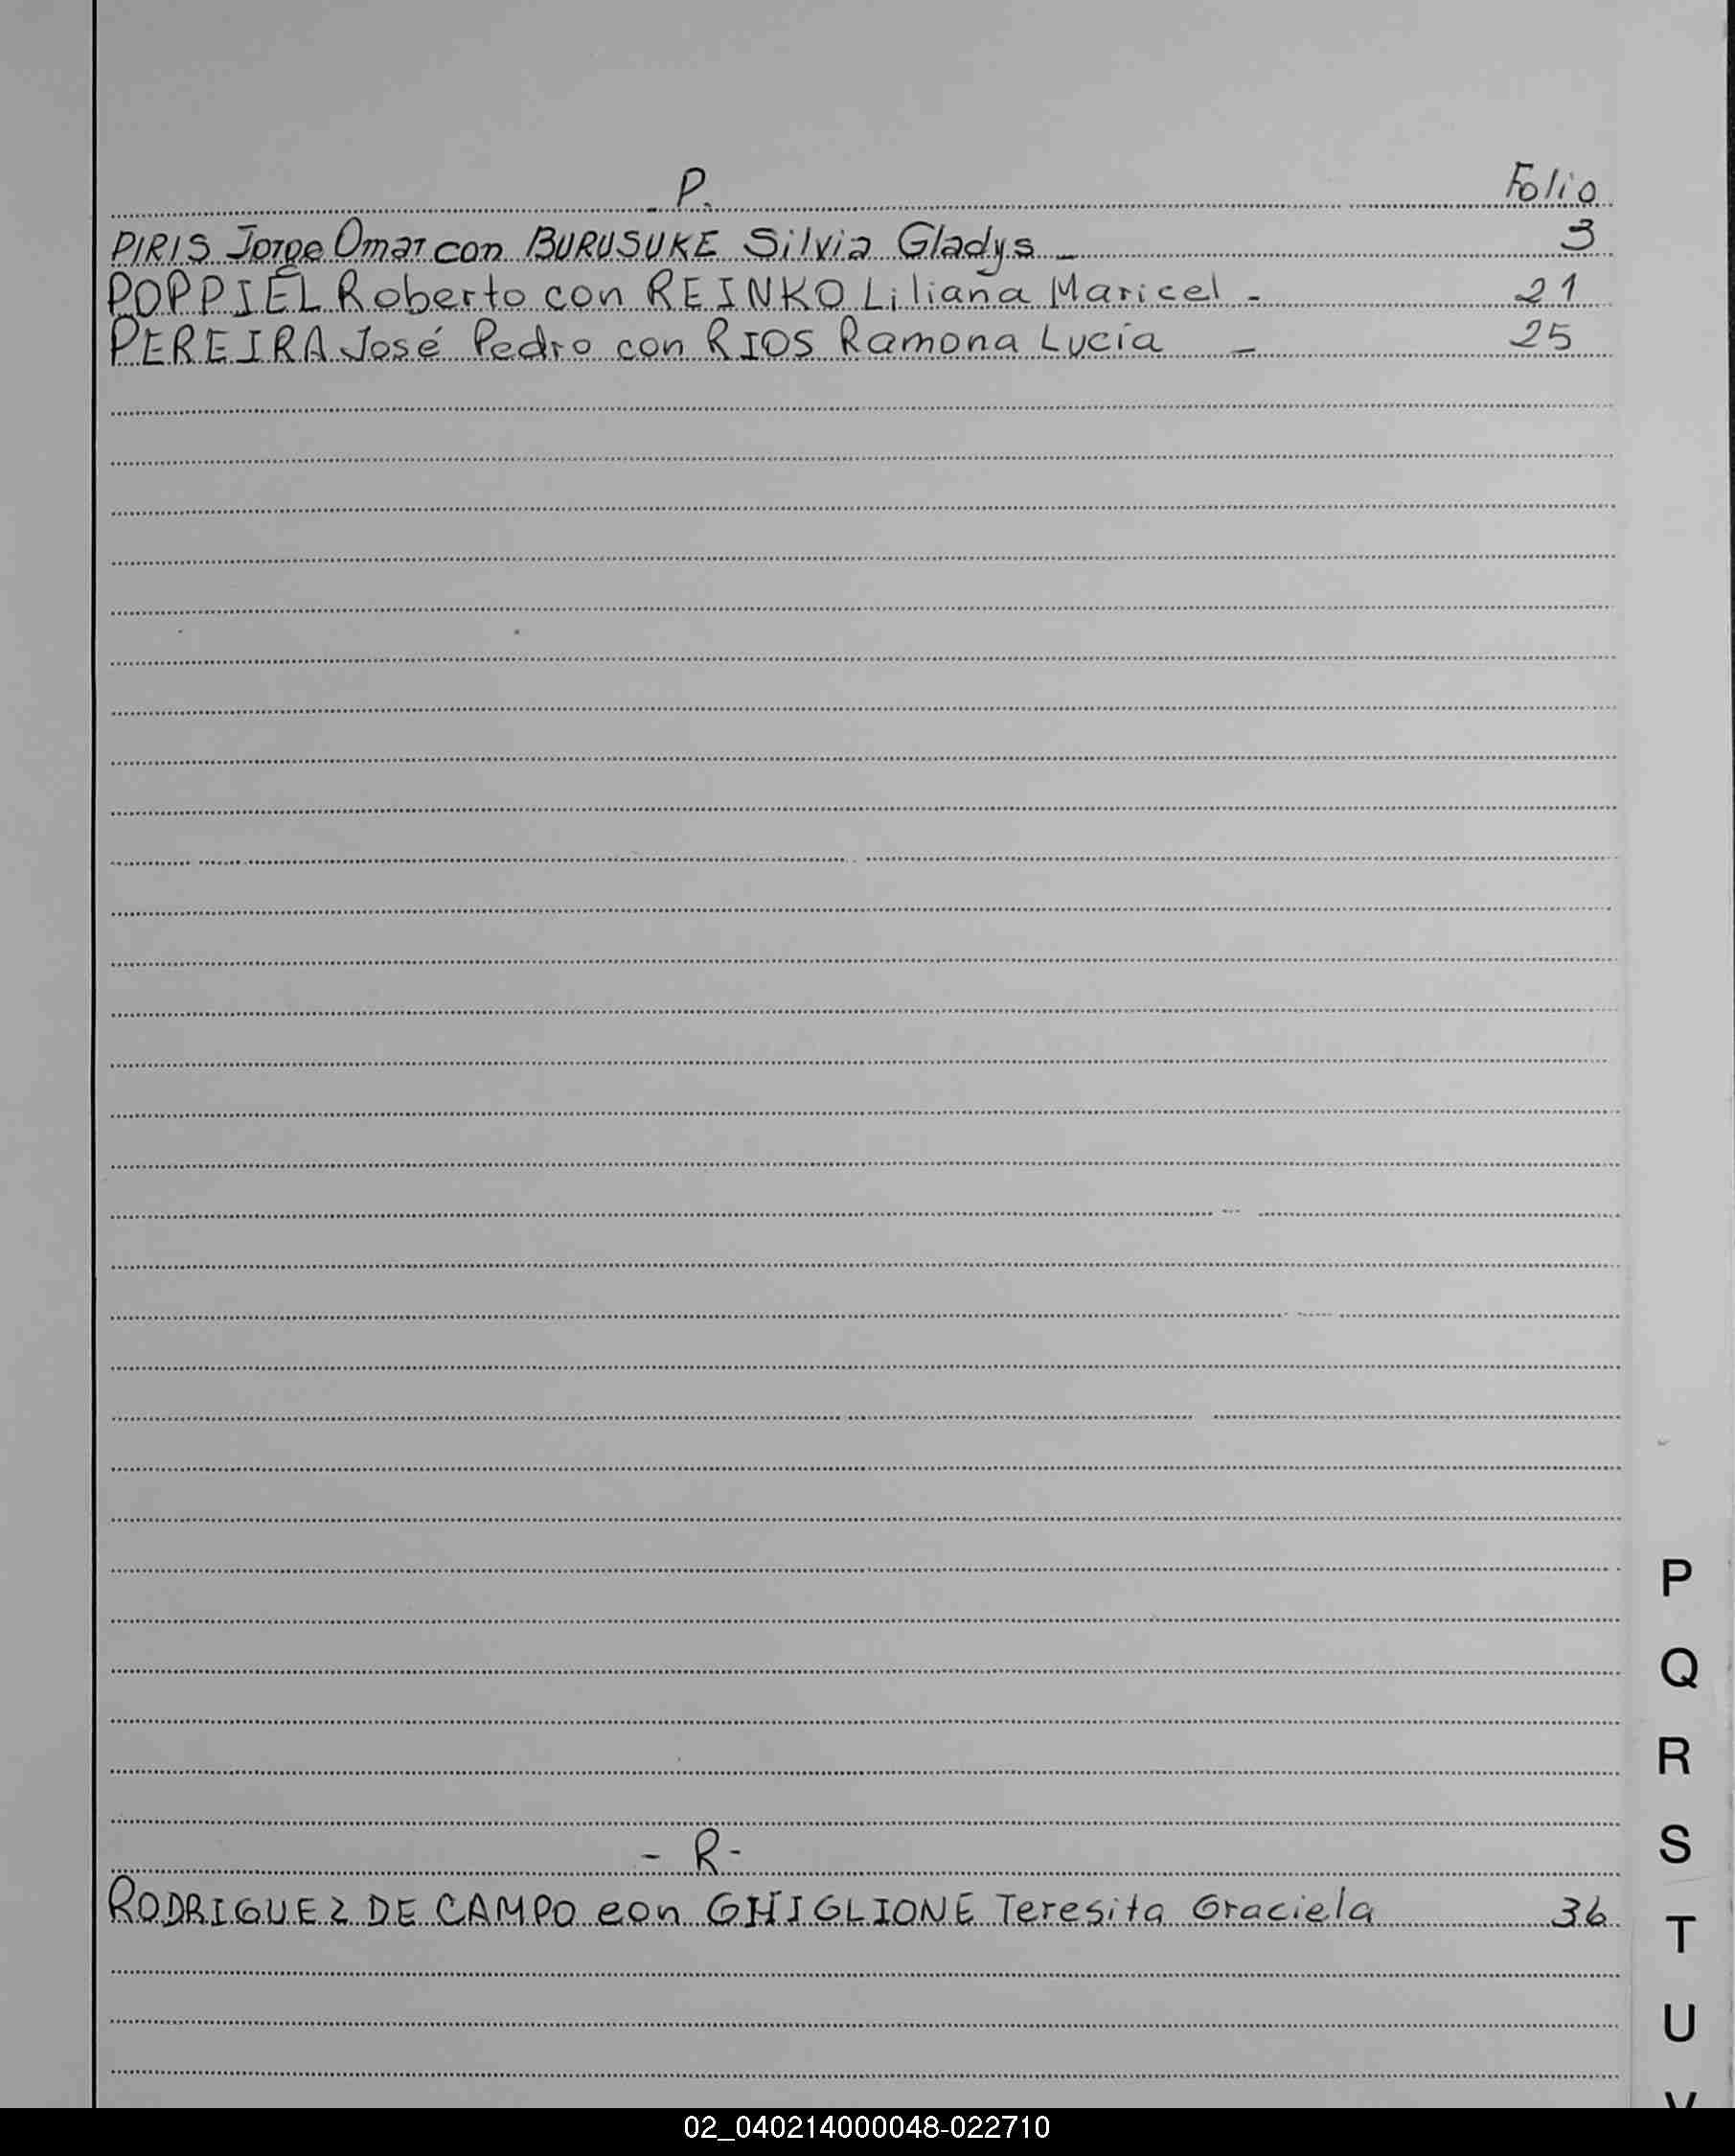 - P. Folio
PIRIS Jorge Omar con BURUSUKE Silvia Gladys - 3
POPPIEL Roberto con REINKO Liliana Maricel - 21
PEREIRA José Pedro con RIOS Ramona Lucía - 25
P
Q
R
S
- R -
RODRIGUEZ DE CAMPO con GHIGLIONE Teresita Graciela 36
T
U
V
02_040214000048-022710